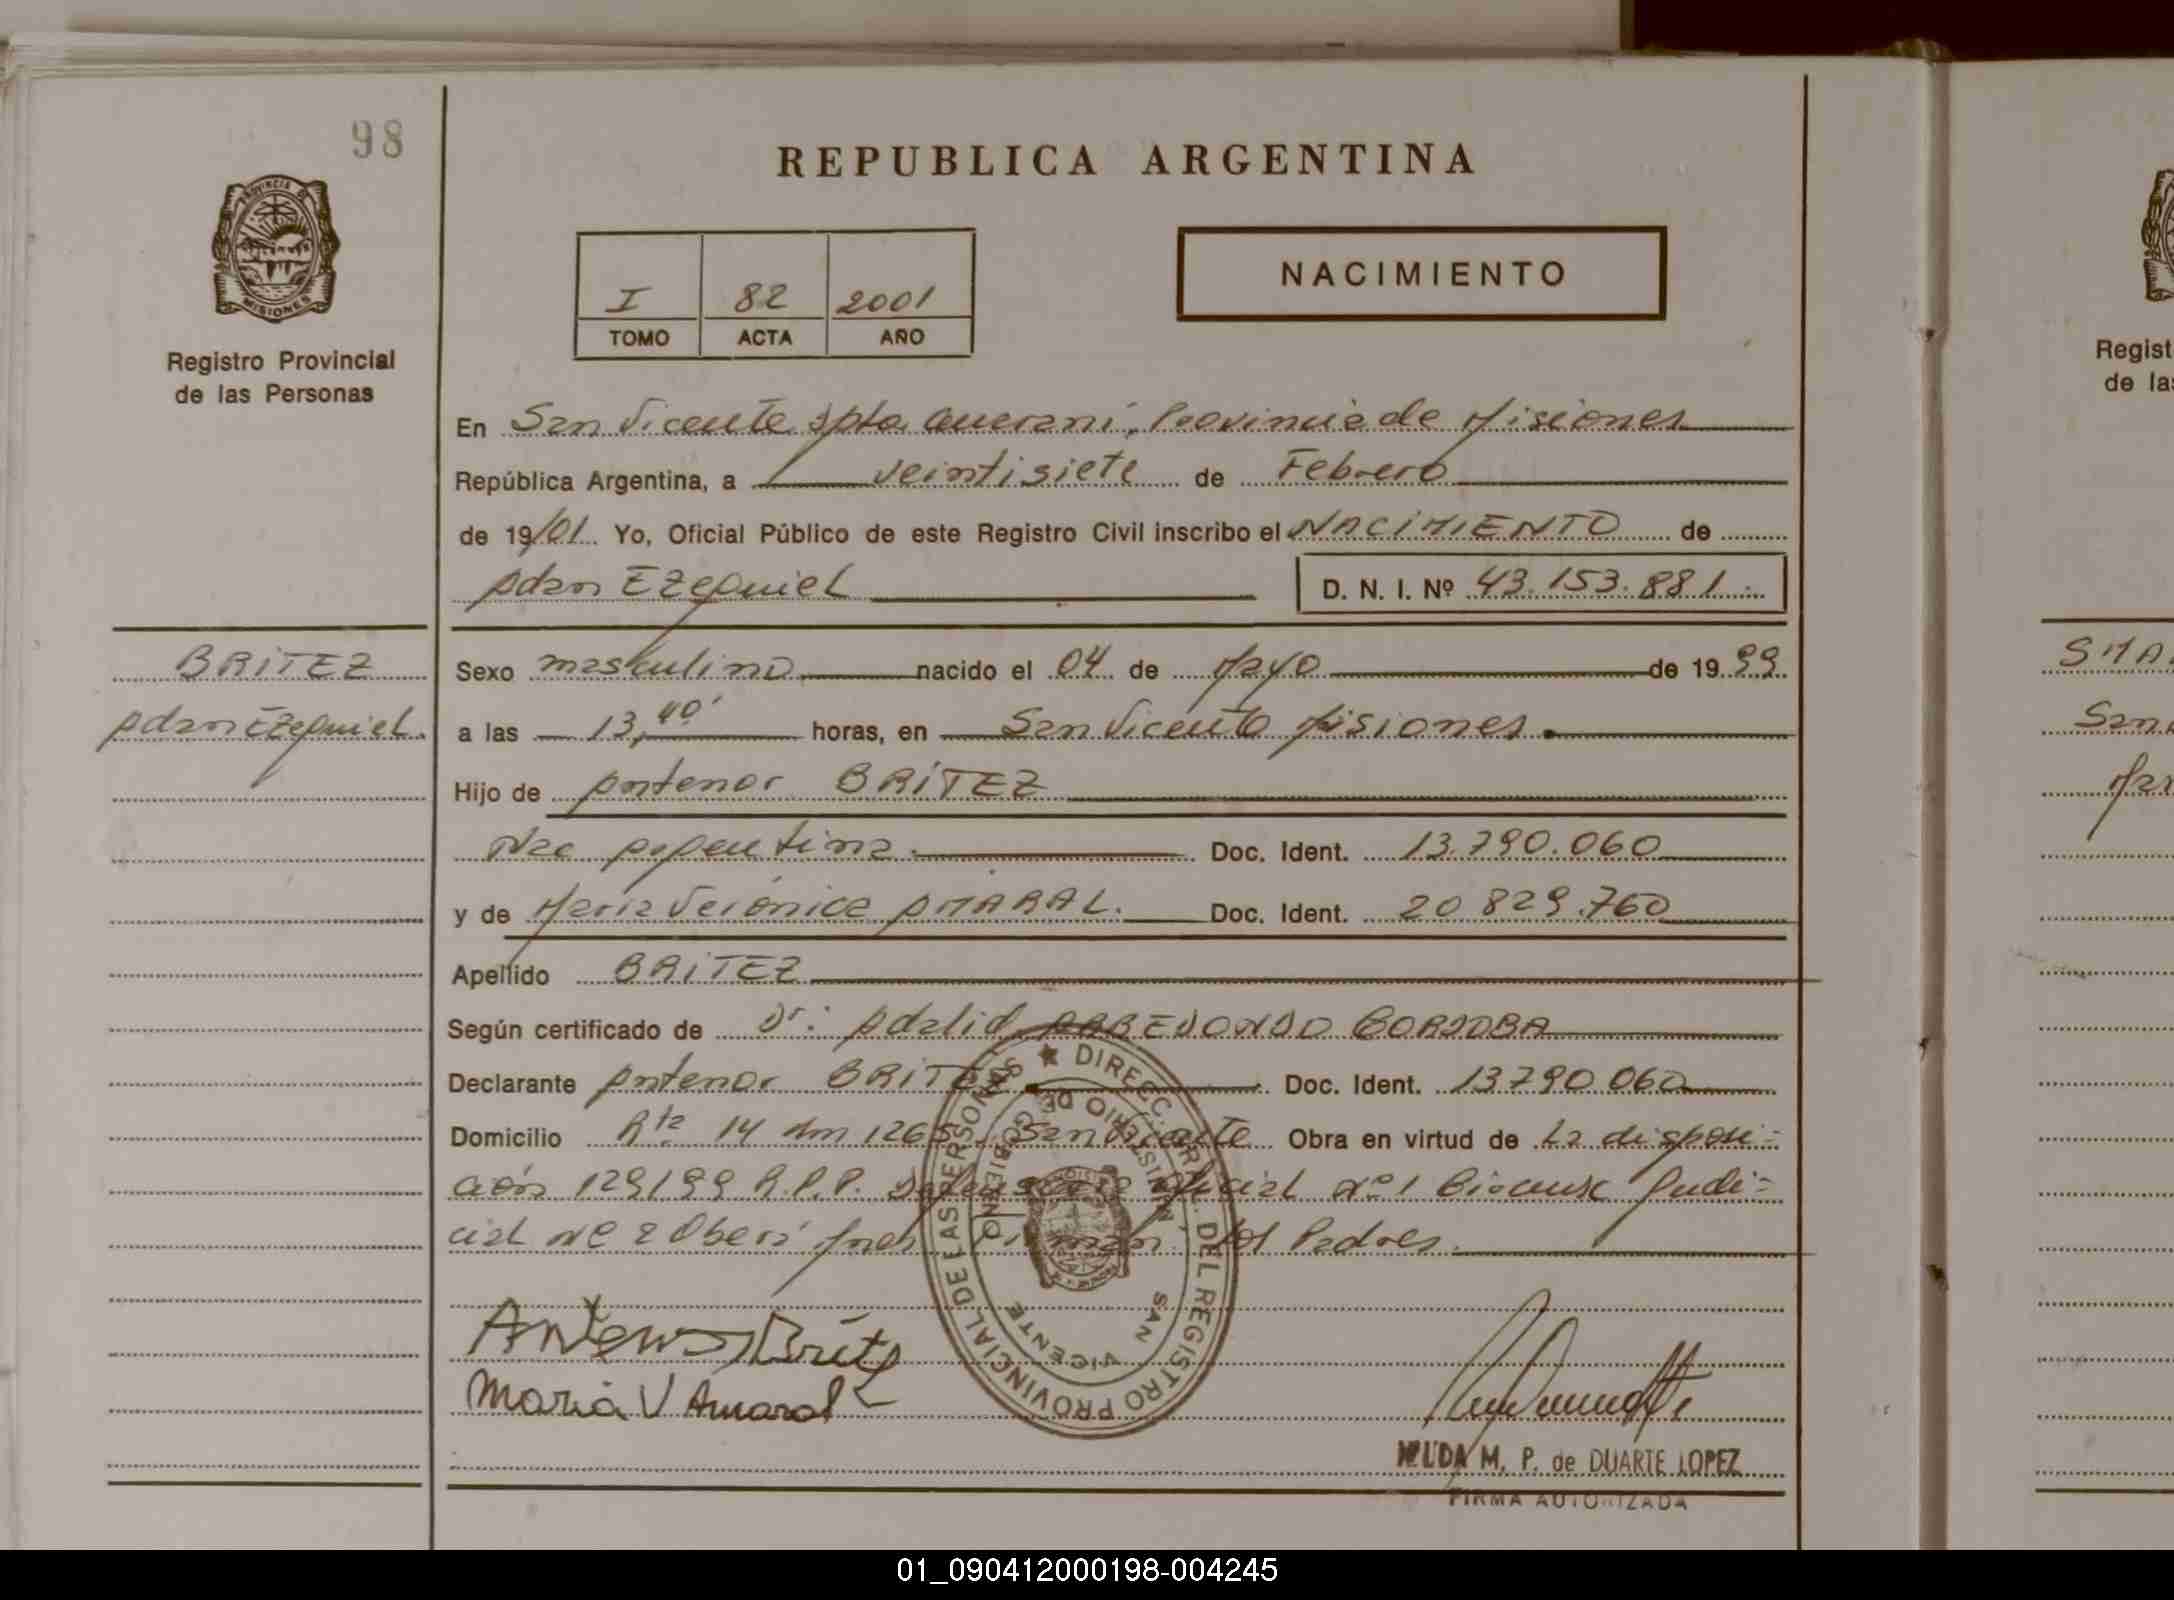 98
REPUBLICA ARGENTINA
PROVINCIA DE
MISIONES
Registro Provincial
de las Personas
NACIMIENTO
I 82 2001
TOMO ACTA AÑO
En San Vicente Dpto Guaraní, Provincia de Misiones
República Argentina, a veintisiete de Febrero
de 19/01 Yo, Oficial Público de este Registro Civil inscribo el NACIMIENTO de
Adan Ezequiel D. N. I. Nº 43.153.881
BRITEZ
Adan Ezequiel.
Sexo masculino nacido el 04 de Mayo de 1999
a las 13,40' horas, en San Vicente Misiones.
Hijo de Antenor BRITEZ
Nac Argentina. Doc. Ident. 13.790.060
y de Maria Verónica AMARAL. Doc. Ident. 20 829.760
Apellido BRITEZ
Según certificado de Dr: Adalid ARREDONDO CORDOBA
Declarante Antenor BRITEZ Doc. Ident. 13790060
Domicilio Rta 14 Km 1265 San Vicente Obra en virtud de La disposi=
ción 129/99 R.P.P. oficial nº1 Judi=
cial Nº 2 Oberá los Padres.
★ DIRECC. GRAL. DEL REGISTRO PROVINCIAL DE LAS PERSONAS
MINISTERIO DE GOBIERNO
SAN VICENTE
Antenor Britez
Maria V Amaral
HILDA M. P. de DUARTE LOPEZ
FIRMA AUTORIZADA
Regist
de las
SMA
San
Mar
01_090412000198-004245